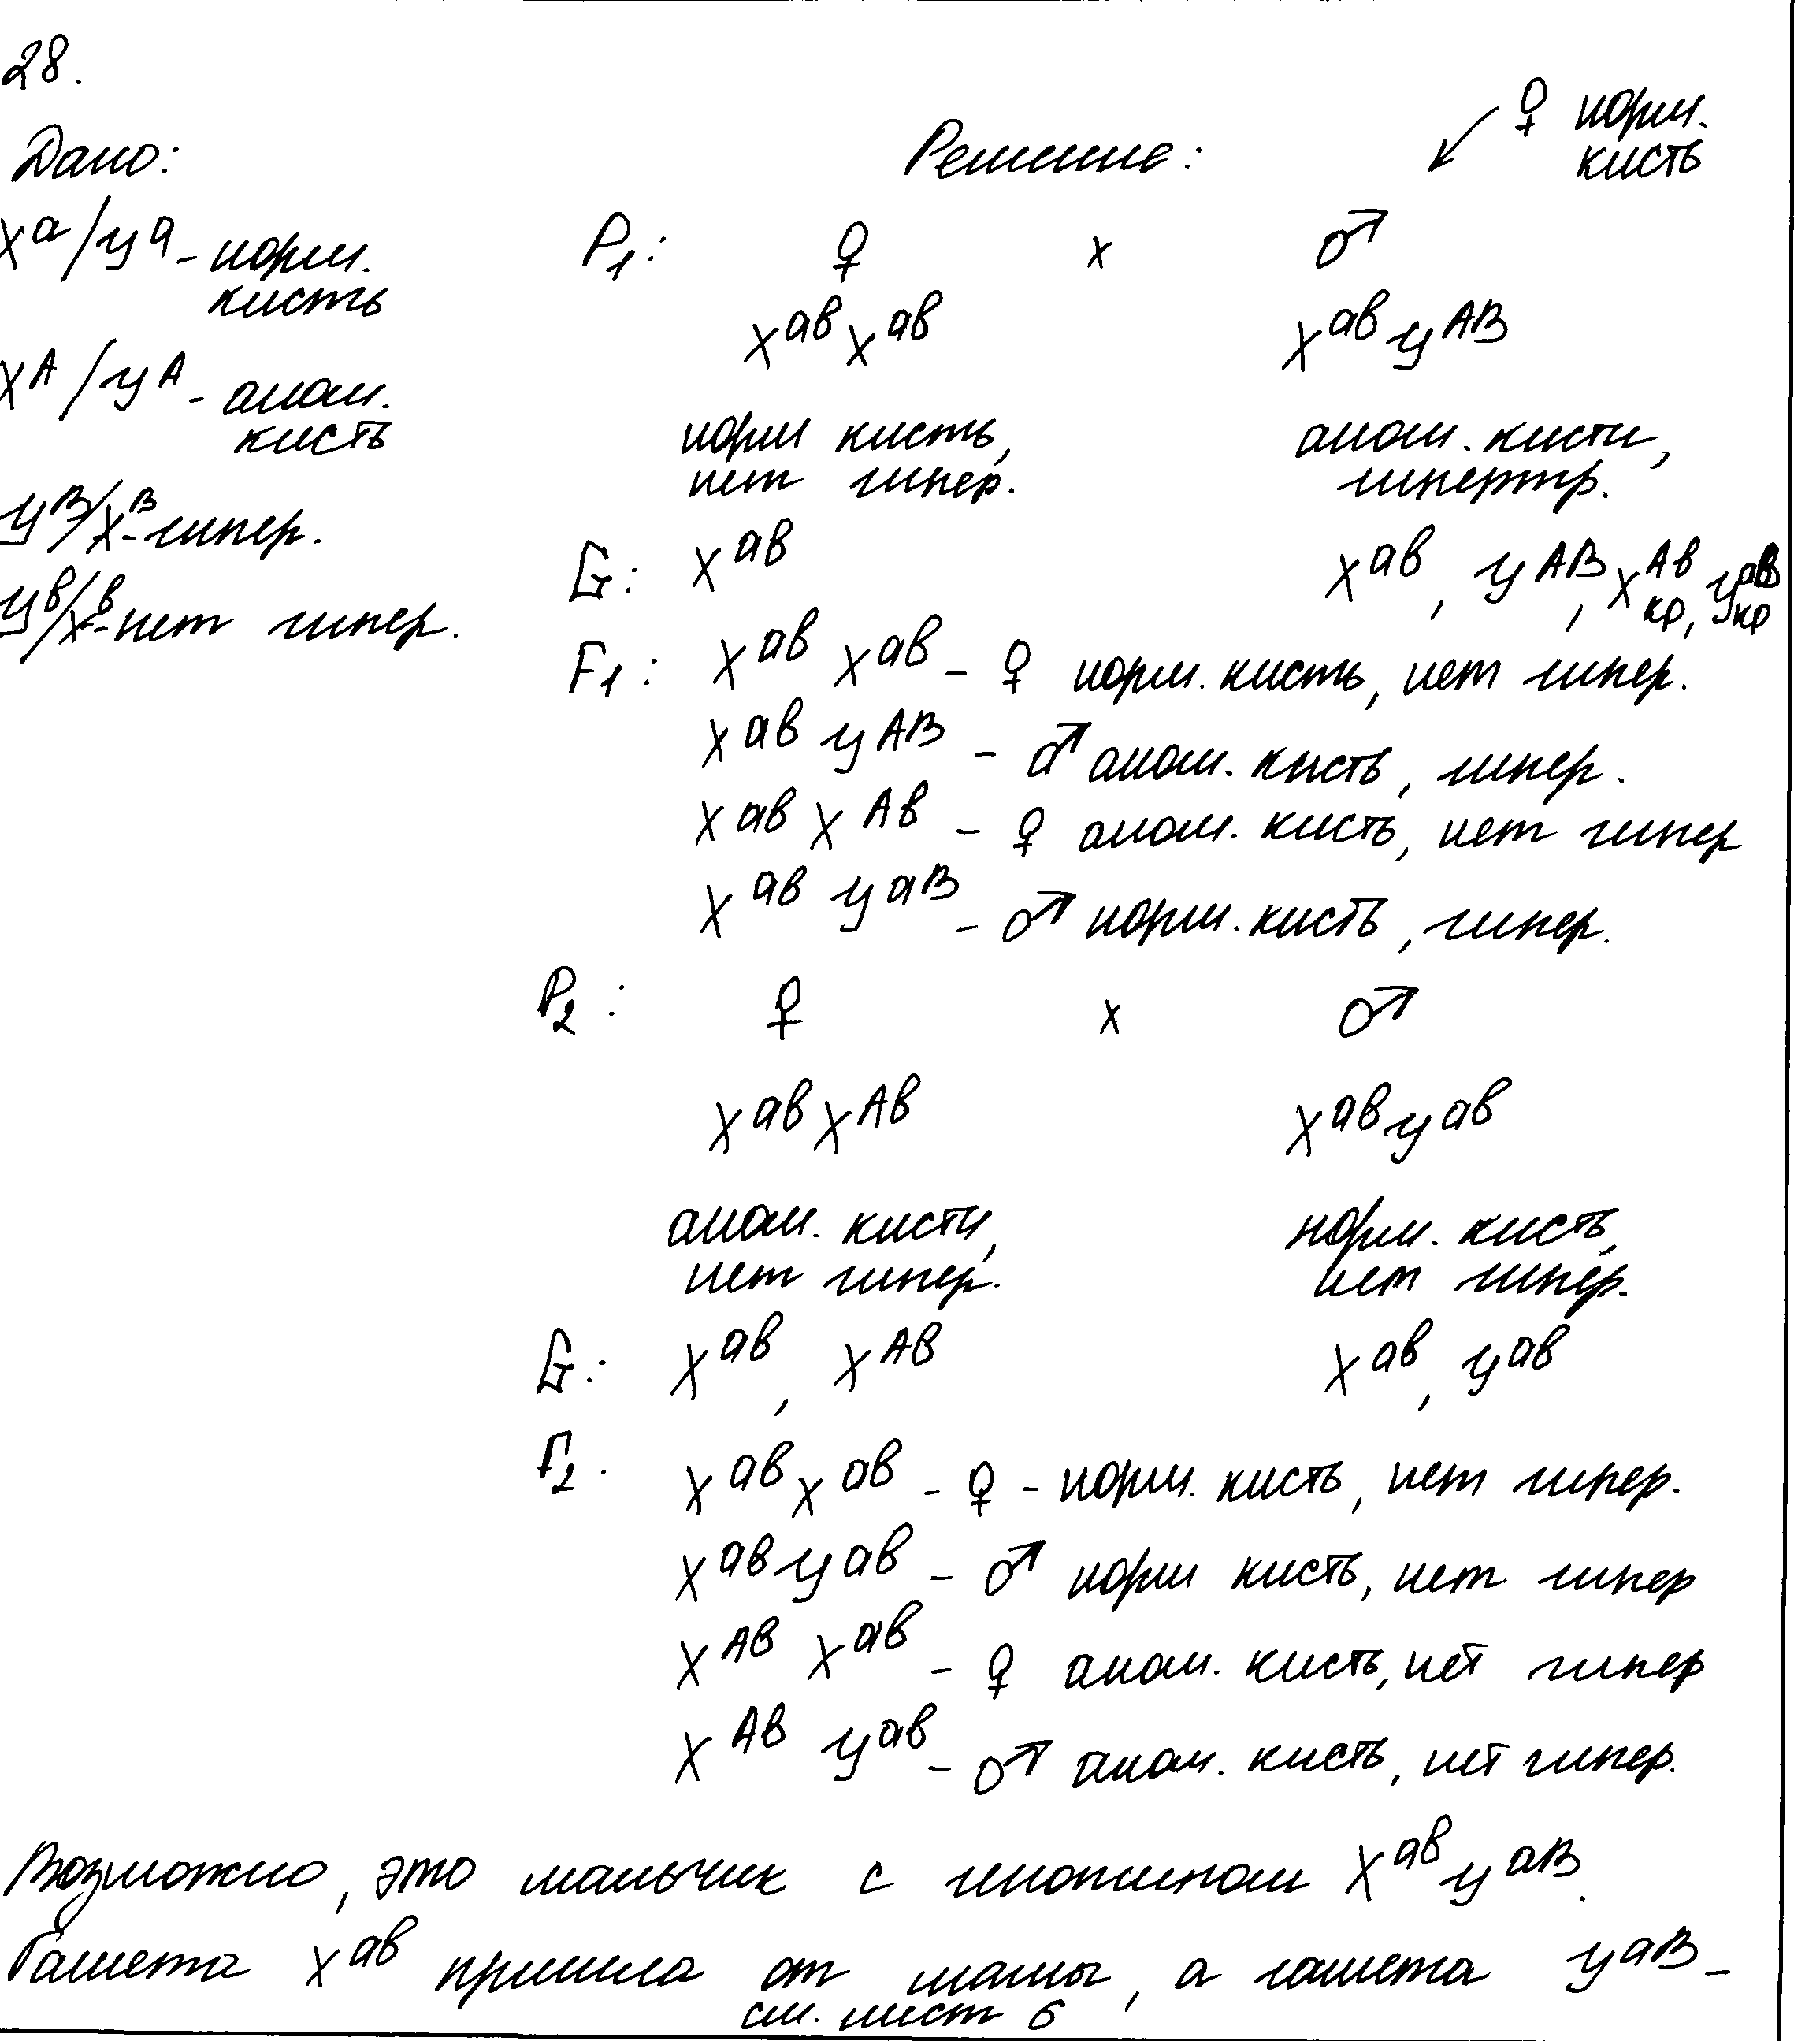 28.
♀ норм.
кисть
Дано:
Решение:
Xᵃ/yᵃ - норм.
кисть
Xᴬ/yᴬ - аном.
кисть
yᴮ/Xᴮ - гипер.
yᵇ/Xᵇ - нет гипер.
P₁: ♀ x ♂
Xᵃᵇ Xᵃᵇ Xᵃᵇ yᴬᴮ
норм кисть, аном. кисти,
нет гипер. гипертр.
G: Xᵃᵇ Xᵃᵇ, yᴬᴮ, Xᴬᵇ кр, yᵃᴮ кр
F₁: Xᵃᵇ Xᵃᵇ - ♀ норм. кисть, нет гипер.
Xᵃᵇ yᴬᴮ - ♂ аном. кисть, гипер.
Xᵃᵇ Xᴬᵇ - ♀ аном. кисть, нет гипер
Xᵃᵇ yᵃᴮ - ♂ норм. кисть, гипер.
P₂: ♀ x ♂
Xᵃᵇ Xᴬᵇ Xᵃᵇ yᵃᵇ
аном. кисти, норм. кисть,
нет гипер. нет гипер.
G: Xᵃᵇ, Xᴬᵇ Xᵃᵇ, yᵃᵇ
F₂. Xᵃᵇ Xᵃᵇ - ♀ - норм. кисть, нет гипер.
Xᵃᵇ yᵃᵇ - ♂ норм кисть, нет гипер
Xᴬᵇ Xᵃᵇ - ♀ аном. кисть, нет гипер
Xᴬᵇ yᵃᵇ - ♂ аном. кисть, нет гипер.
Возможно, это мальчик с генотипом Xᵃᵇ yᵃᴮ.
Гамета Xᵃᵇ пришла от мамы, а гамета yᵃᴮ -
см. лист 6